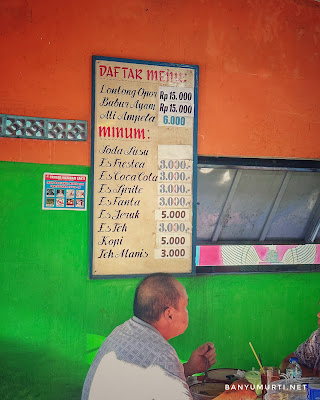 DAFTAR MENU:
Lontong Opor Rp 15.000
Bubur Ayam Rp 15.000
Ati Ampela 6.000
MINUM:
Soda Susu
Es Frestea 3.000,-
Es Coca Cola 3.000,-
Es Sprite 3.000,-
Es Fanta 3.000,-
Es Jeruk 5.000
Es Teh 3.000,-
Kopi 5.000
Teh Manis 3.000
BANYUMURTI.NET